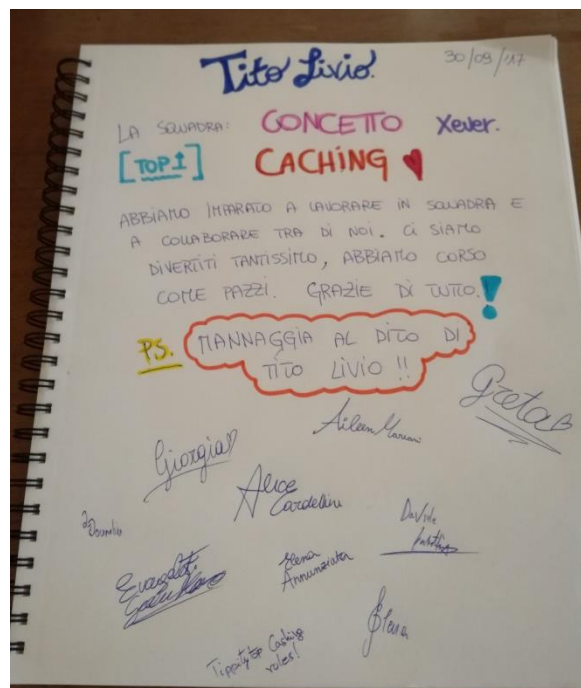 Tito Livio.
30/09/17
LA SQUADRA: CONCETTO Xever.
[TOP 1] CACHING
ABBIAMO IMPARATO A LAVORARE IN SQUADRA E
A COLLABORARE TRA DI NOI. CI SIAMO
DIVERTITI TANTISSIMO, ABBIAMO CORSO
COME PAZZI. GRAZIE DI TUTTO!
P.S. MANNAGGIA AL DITO DI
TITO LIVIO!!
Greta
Aileen
Giorgia
Alice
Cardellini
Davide
Elena
Annunziata
Tippity top Caching
rules!